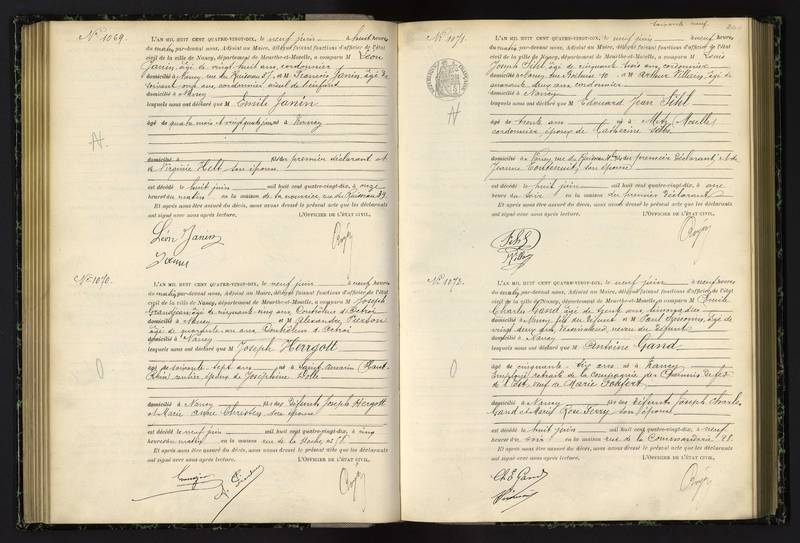 N° 1069.
L'AN MIL HUIT CENT QUATRE-VINGT-DIX, le neuf juin à huit heures
du matin par-devant nous, Adjoint au Maire, délégué faisant fonctions d'officier de l'état
civil de la ville de Nancy, département de Meurthe-et-Moselle, a comparu M Léon
Janin, âgé de vingt huit ans, cordonnier
domicilié à Nancy, rue du Ruisseau 57, et M François Janin, âgé de
soixante ans, cordonnier aïeul de l'enfant
domicilié à Nancy
lesquels nous ont déclaré que M Emile Janin
âgé de quatre mois et vingt jours né à Nancy
domicilié à fils du premier déclarant et
de Virginie Helt son épouse
est décédé le huit juin mil huit cent quatre-vingt-dix, à onze
heures du matin en la maison de la nourrice, rue du Ruisseau 39
Et après nous être assuré du décès, nous avons dressé le présent acte que les déclarants
ont signé avec nous après lecture. L'OFFICIER DE L'ÉTAT CIVIL,
Léon Janin
Janin
N° 1070.
L'AN MIL HUIT CENT QUATRE-VINGT-DIX, le neuf juin à neuf heures
du matin, par-devant nous, Adjoint au Maire, délégué faisant fonctions d'officier de l'état
civil de la ville de Nancy, département de Meurthe-et-Moselle, a comparu M Joseph
Grandjean âgé de cinquante cinq ans Contrôleur d'octroi
domicilié à Nancy et M Alexandre
âgé de quarante un ans Contrôleur d'octroi
domicilié à Nancy
lesquels nous ont déclaré que M Joseph Herrgott
âgé de soixante sept ans né à Saint Amarin (Haut
Rhin) rentier époux de Joséphine Dollé
domicilié à Nancy fils des défunts Joseph Hergott
et Marie Anne son épouse
est décédé le neuf juin mil huit cent quatre-vingt-dix, à cinq
heures du matin en la maison rue de la n° 18
Et après nous être assuré du décès, nous avons dressé le présent acte que les déclarants
ont signé avec nous après lecture. L'OFFICIER DE L'ÉTAT CIVIL,
soixante neuf
N° 1071.
L'AN MIL HUIT CENT QUATRE-VINGT-DIX, le neuf juin à neuf heures
du matin par-devant nous, Adjoint au Maire, délégué faisant fonctions d'officier de l'état
civil de la ville de Nancy, département de Meurthe-et-Moselle, a comparu M Louis
Joseph Sihl âgé de cinquante trois ans, cordonnier
domicilié à Nancy 10 et M Arthur âgé de
quarante deux ans cordonnier
domicilié à Nancy
lesquels nous ont déclaré que M Edouard Jean Sihl
âgé de trente ans né à Metz (Moselle)
cordonnier époux de Catherine
domicilié à Nancy, rue du Ruisseau fils du premier déclarant et de
Jeanne son épouse
est décédé le huit juin mil huit cent quatre-vingt-dix, à une
heure du soir en la maison du premier déclarant
Et après nous être assuré du décès, nous avons dressé le présent acte que les déclarants
ont signé avec nous après lecture. L'OFFICIER DE L'ÉTAT CIVIL,
N° 1072.
L'AN MIL HUIT CENT QUATRE-VINGT-DIX, le neuf juin à neuf heures
du matin, par-devant nous, Adjoint au Maire, délégué faisant fonctions d'officier de l'état
civil de la ville de Nancy, département de Meurthe-et-Moselle, a comparu M Emile
Charles Gand âgé de
domicilié à Nancy, fils du défunt et M Paul âgé de
vingt deux ans neveu du défunt
domicilié à Nancy
lesquels nous ont déclaré que M Antoine Gand
âgé de cinquante six ans né à Nancy
Employé retraité de la compagnie des Chemins de fer
de l'Est, veuf de Marie
domicilié à Nancy fils des défunts Joseph Charles
Gand et Marie Rose Ferry son épouse
est décédé le huit juin mil huit cent quatre-vingt-dix, à neuf
heures du soir en la maison rue de la Commanderie 28
Et après nous être assuré du décès, nous avons dressé le présent acte que les déclarants
ont signé avec nous après lecture. L'OFFICIER DE L'ÉTAT CIVIL,
Ch E Gand